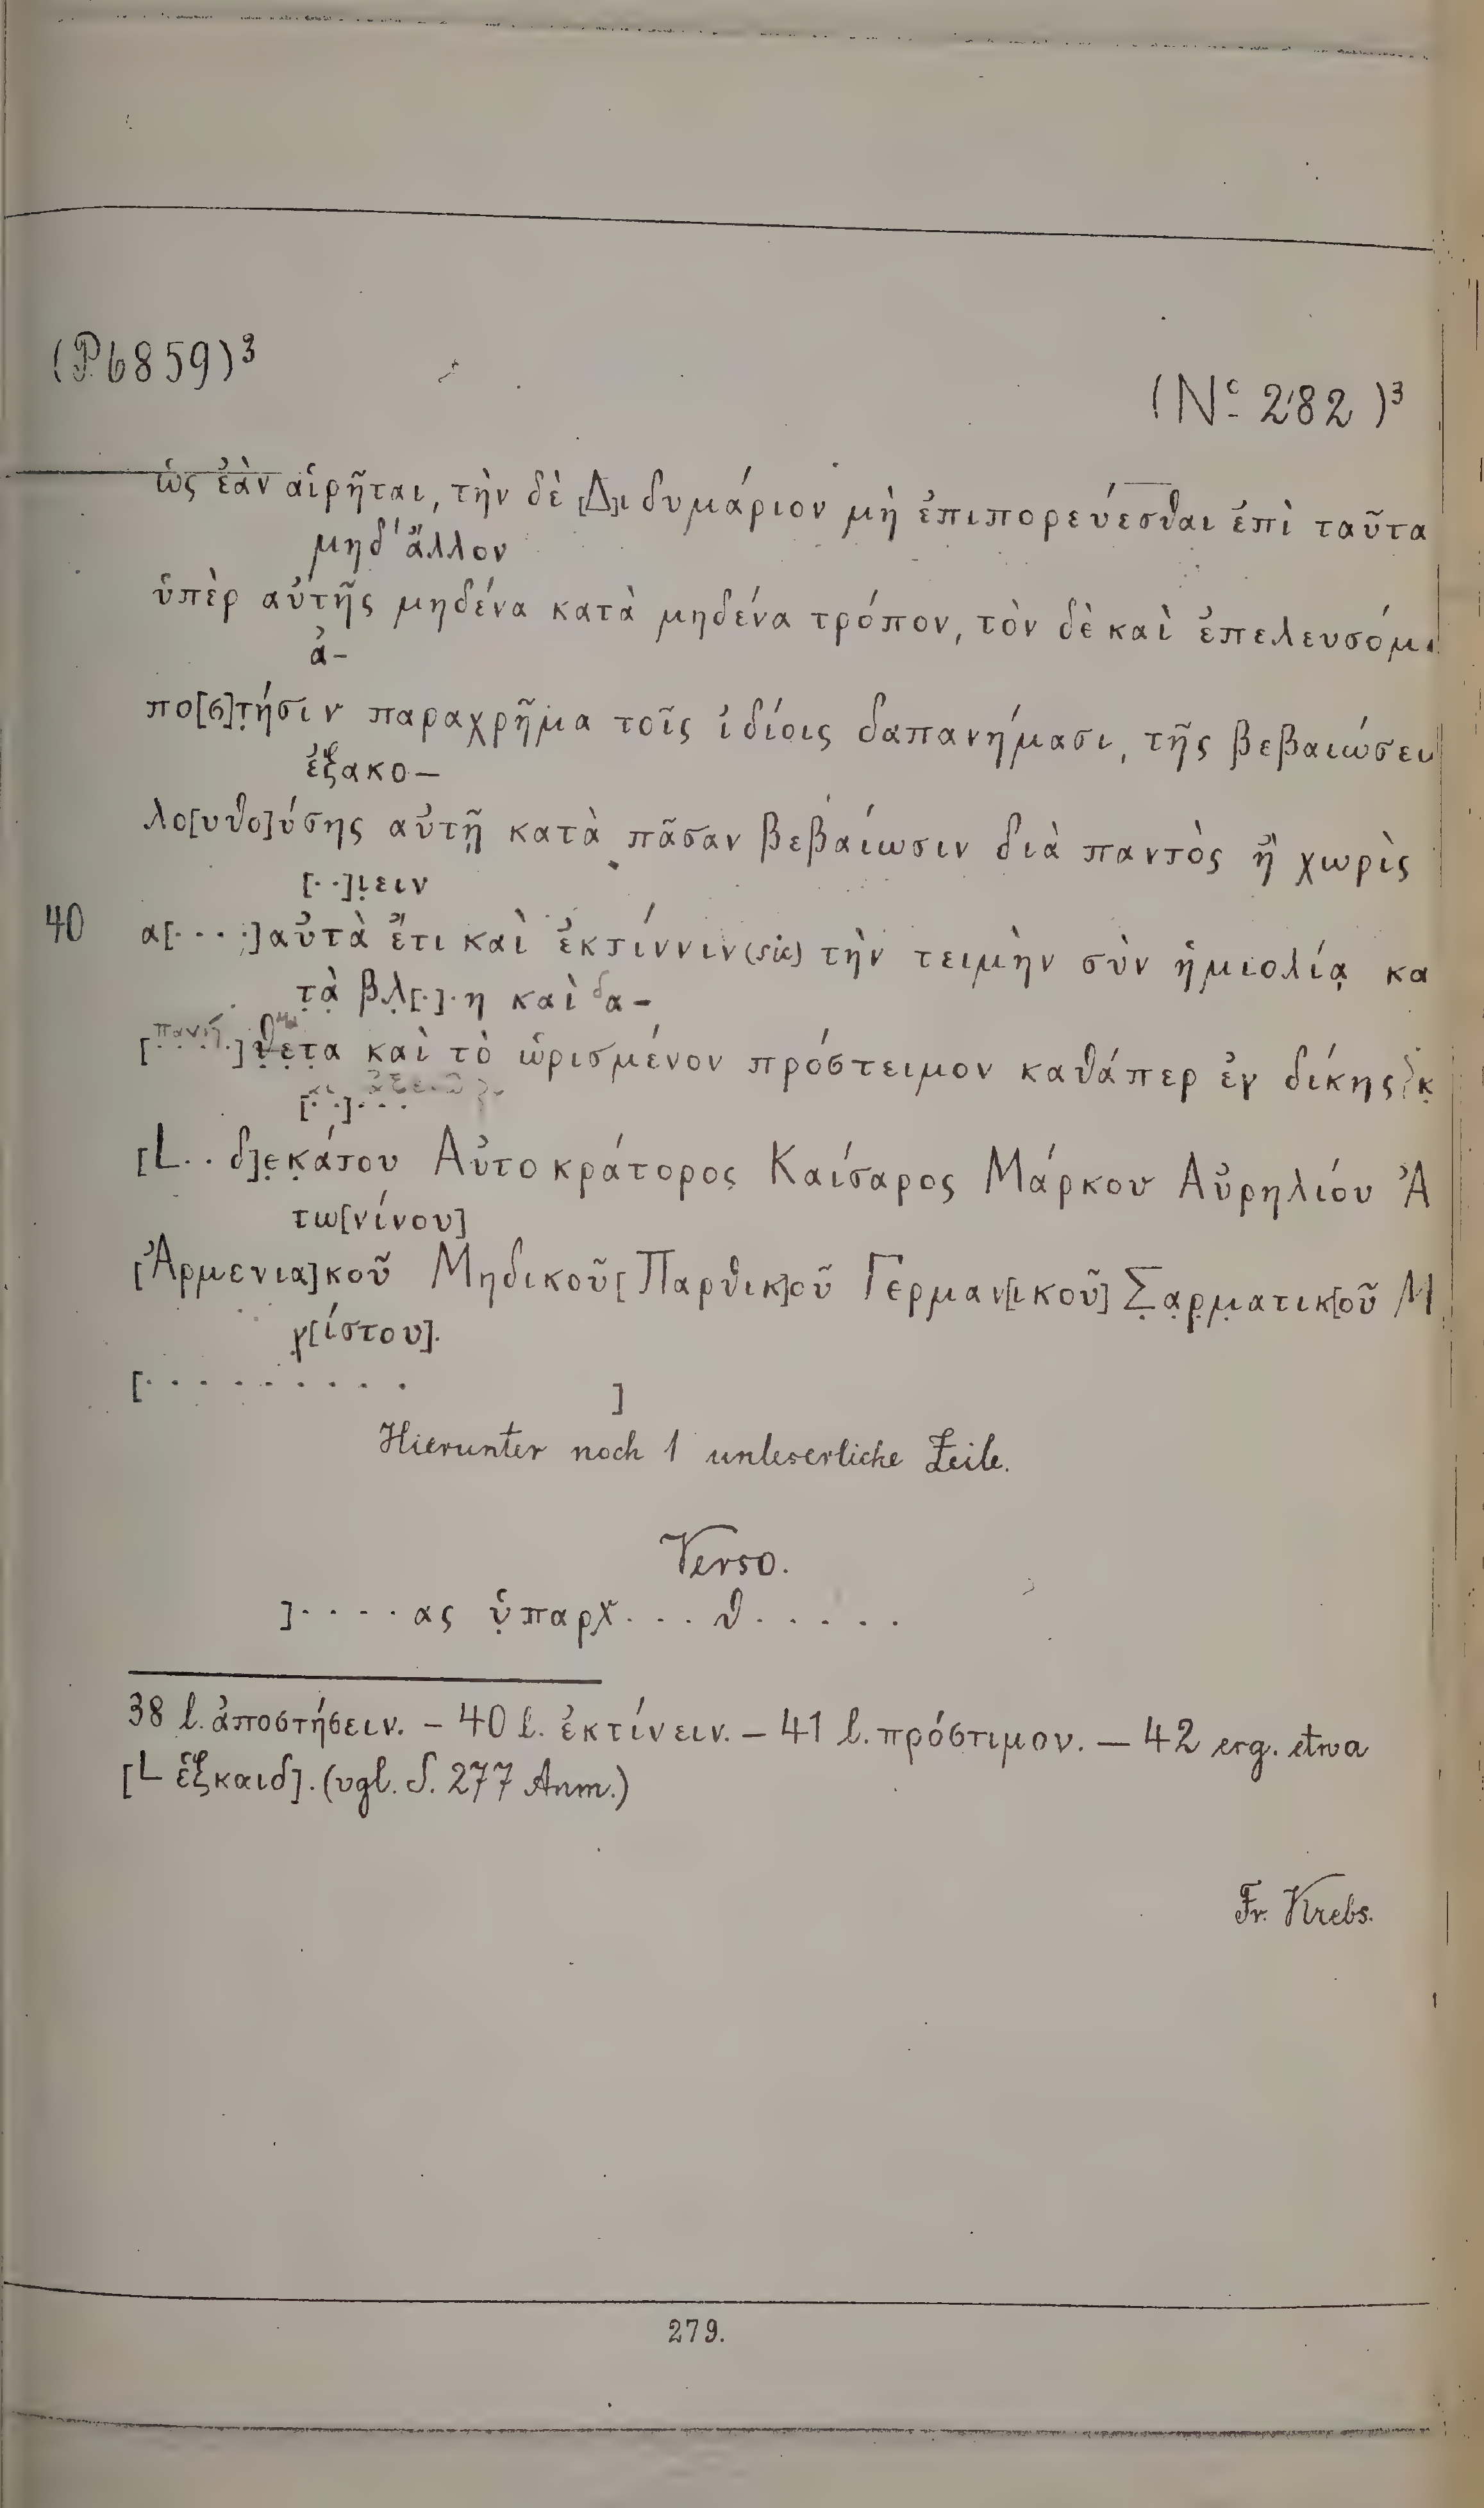 (P 6859)³
(Nº 282)³
ὡς ἐὰν αἱρῆται, τὴν δὲ [Δ]ιδυμάριον μὴ ἐπιπορεύεσθαι ἐπὶ ταῦτα
μηδ' ἄλλον
ὑπὲρ αὐτῆς μηδένα κατὰ μηδένα τρόπον, τὸν δὲ καὶ ἐπελευσόμ
ἀ-
πο[σ]τ̣ήσιν παραχρῆμα τοῖς ἰδίοις δαπανήμασι, τῆς βεβαιώσεω
ἐξακο-
λο[υθο]ύσης αὐτῇ κατὰ πᾶσαν βεβαίωσιν διὰ παντὸς ἢ χωρὶς
[. .]ι̣ειν
40 α[. . . .]αὐτὰ ἔτι καὶ ἐκτίννιν (sic) τὴν τειμὴν σὺν ἡμιολίᾳ κα
τ̣ὰ̣ β̣λ̣[.]. η καὶ δα-
[. . . .]ν̣ε̣τ̣α καὶ τὸ ὡρισμένον πρόστειμον καθάπερ ἐγ δίκης κ̣
[. .]. . .
[L . . δ]ε̣κ̣άτου Αὐτοκράτορος Καίσαρος Μάρκου Αὐρηλίου Ἀ
τω[νίνου]
[Ἀρμενια]κοῦ Μηδικοῦ [Παρθικ]οῦ Γερμαν[ικοῦ] Σ̣α̣ρ̣μ̣ατικ[οῦ Μ
γ[ίστου].
[. . . . . . . . . ]
Hierunter noch 1 unleserliche Zeile.
Verso.
]. . . . ας ὑ̣παρχ . . . θ . . . . .
38 l. ἀποστήσειν. – 40 l. ἐκτίνειν. – 41 l. πρόστιμον. – 42 erg. etwa
[L ἑξκαιδ]. (vgl. S. 277 Anm.)
Fr. Krebs.
279.